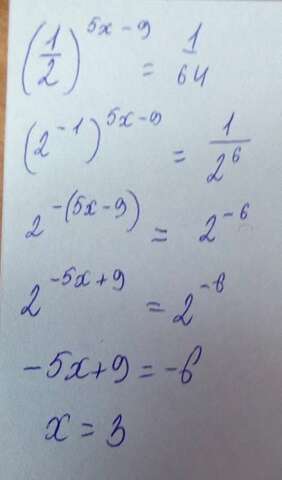 (1/2)^(5x-9) = 1/64
(2^-1)^(5x-9) = 1/2^6
2^-(5x-9) = 2^-6
2^-5x+9 = 2^-6
-5x+9=-6
x = 3